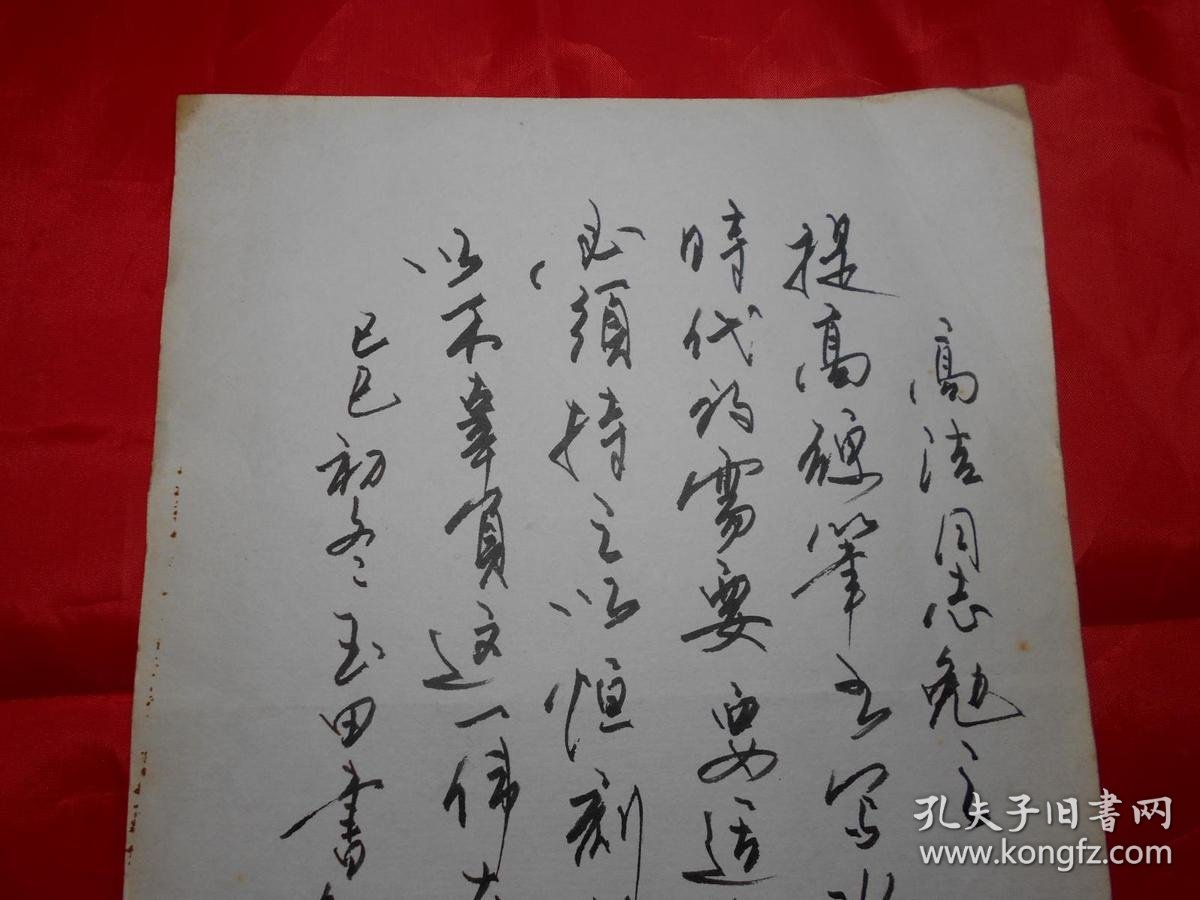 高洁同志勉之
提高硬筆书写水
時代的需要要适
必須持之以恒刻
以不辜負这一偉大
己巳初冬玉田書
孔夫子旧书网
www.kongfz.com